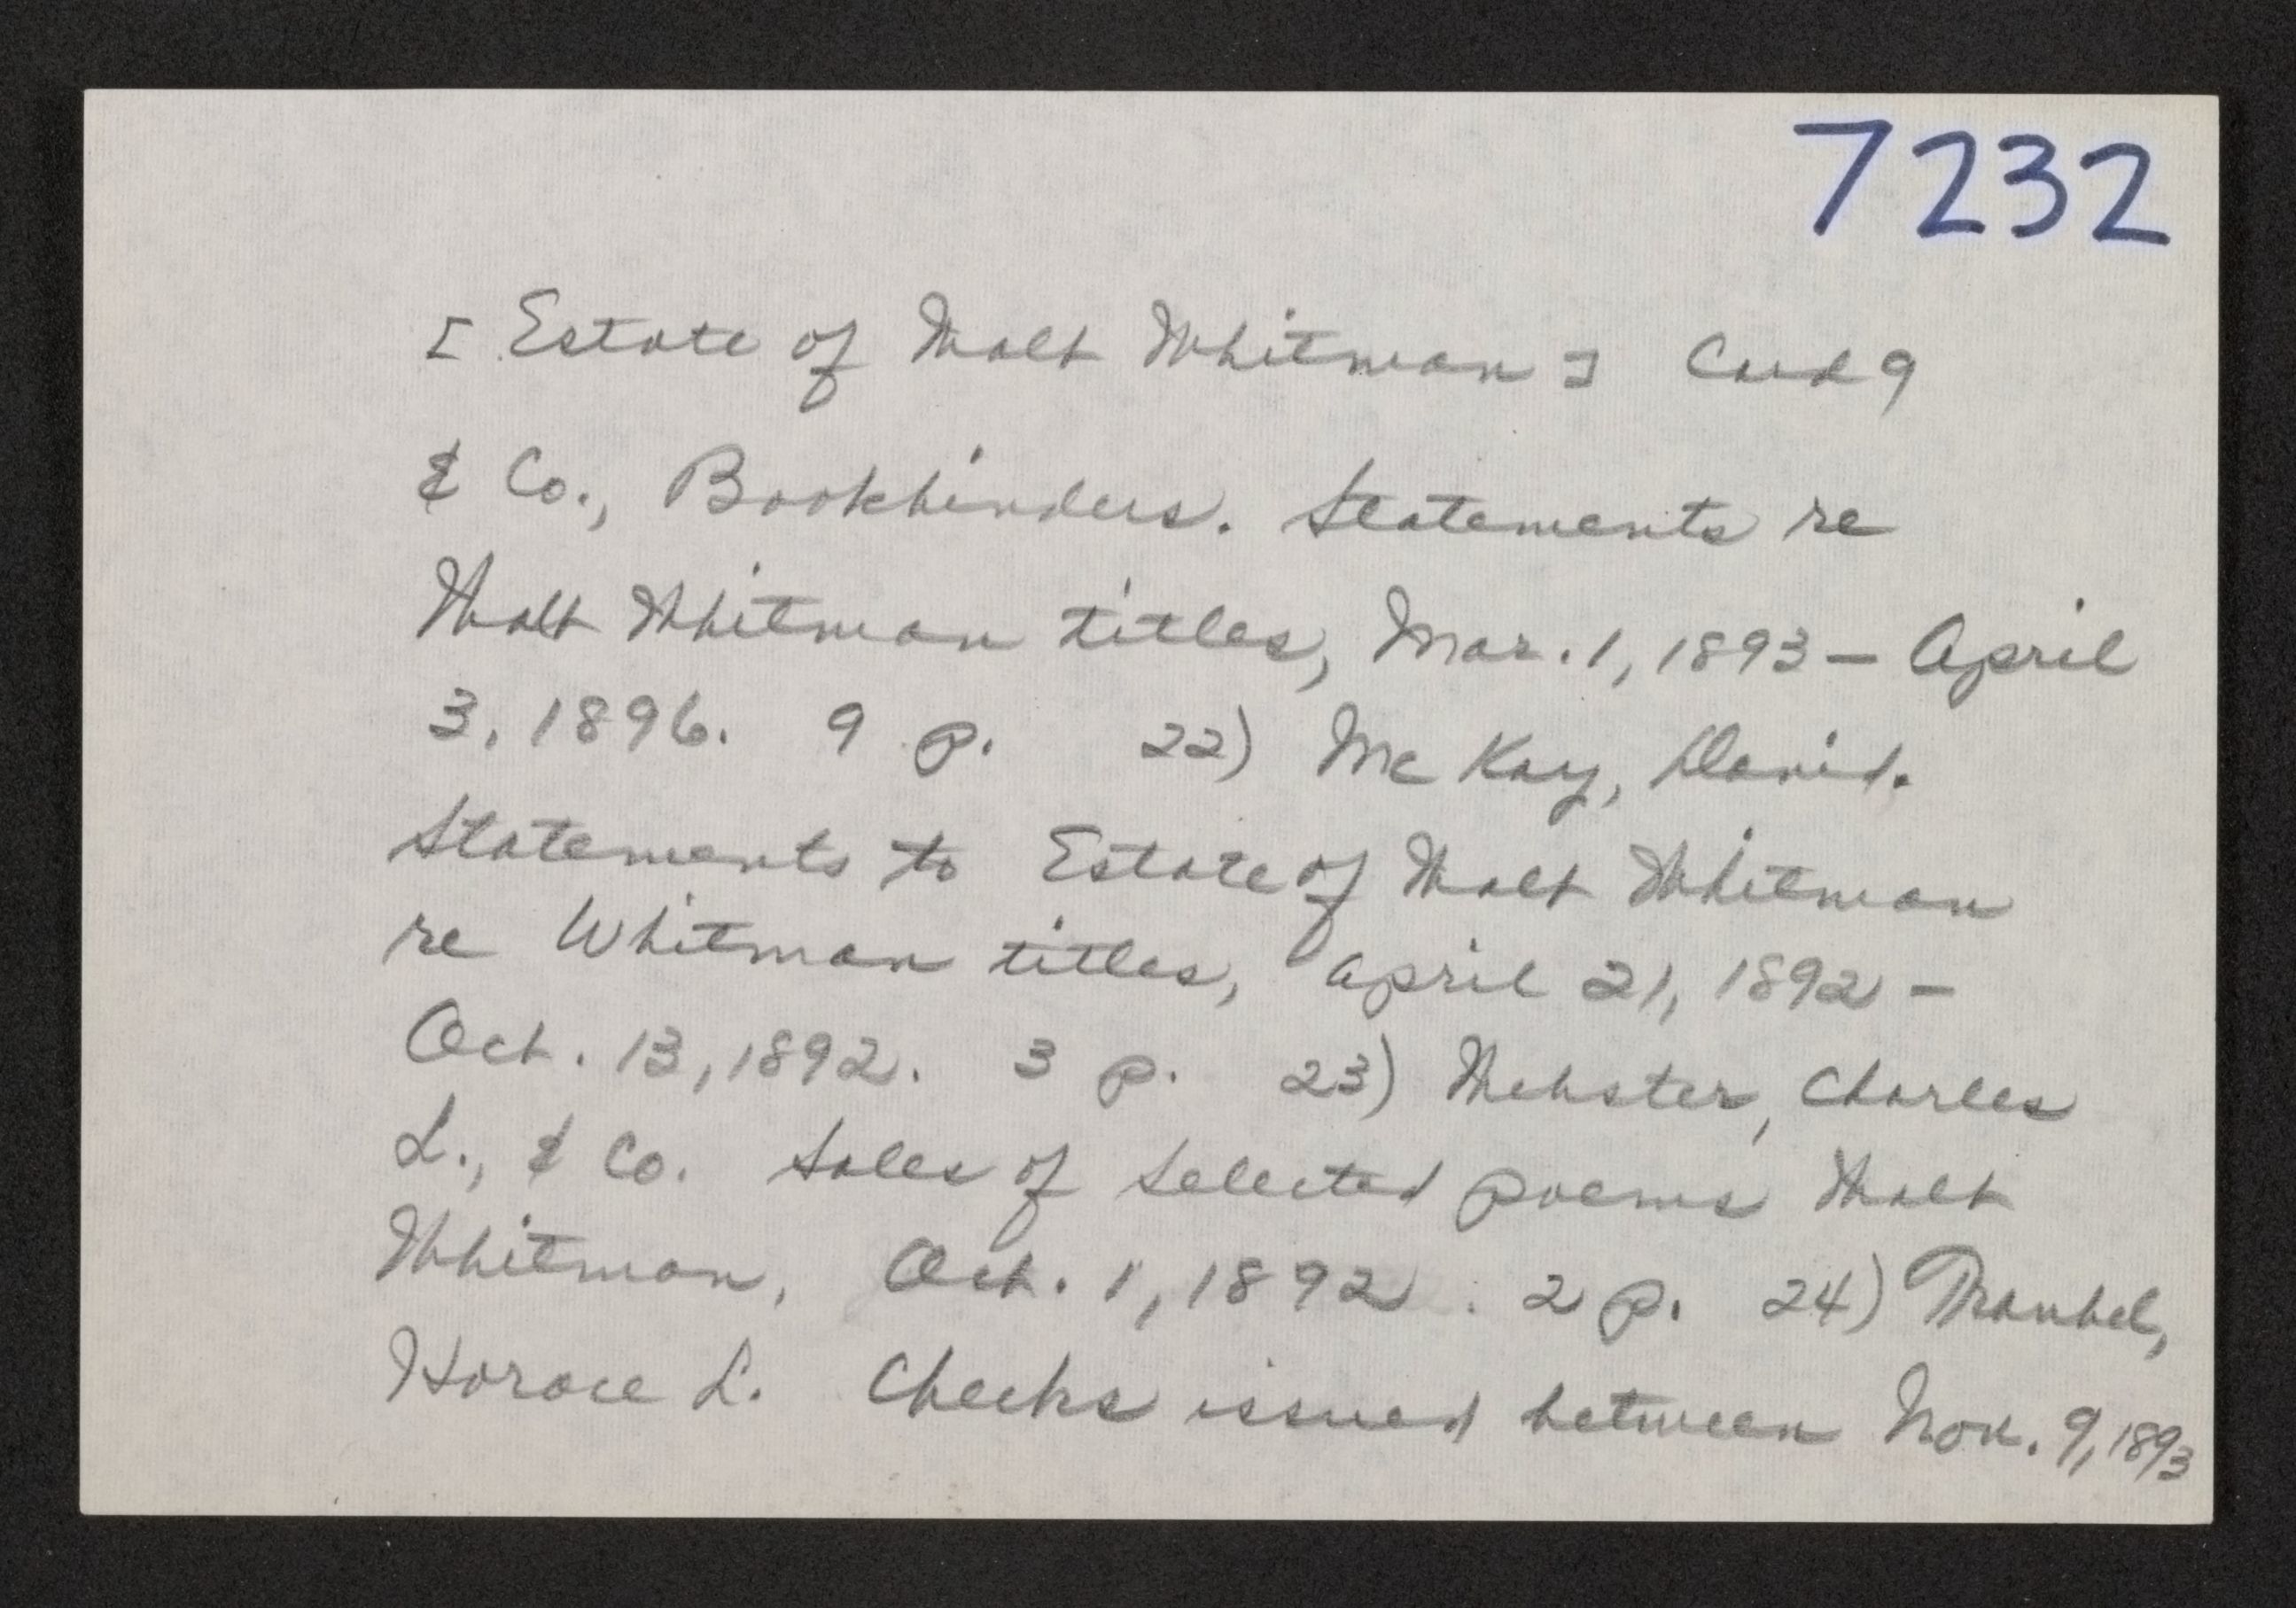 7232
[Estate of Walt Whitman] Card 9
& Co., Bookbinders. Statements re
Walt Whitman titles, Mar. 1, 1893 – April
3, 1896. 9 p. 22) McKay, David.
Statements to Estate of Walt Whitman
re Whitman titles, April 21, 1892 –
Oct. 13, 1892. 3 p. 23) Webster, Charles
L., & Co. Sales of Selected poems Walt
Whitman, Oct. 1, 1892. 2 p. 24) Traubel,
Horace L. Checks issued between Nov. 9, 1893